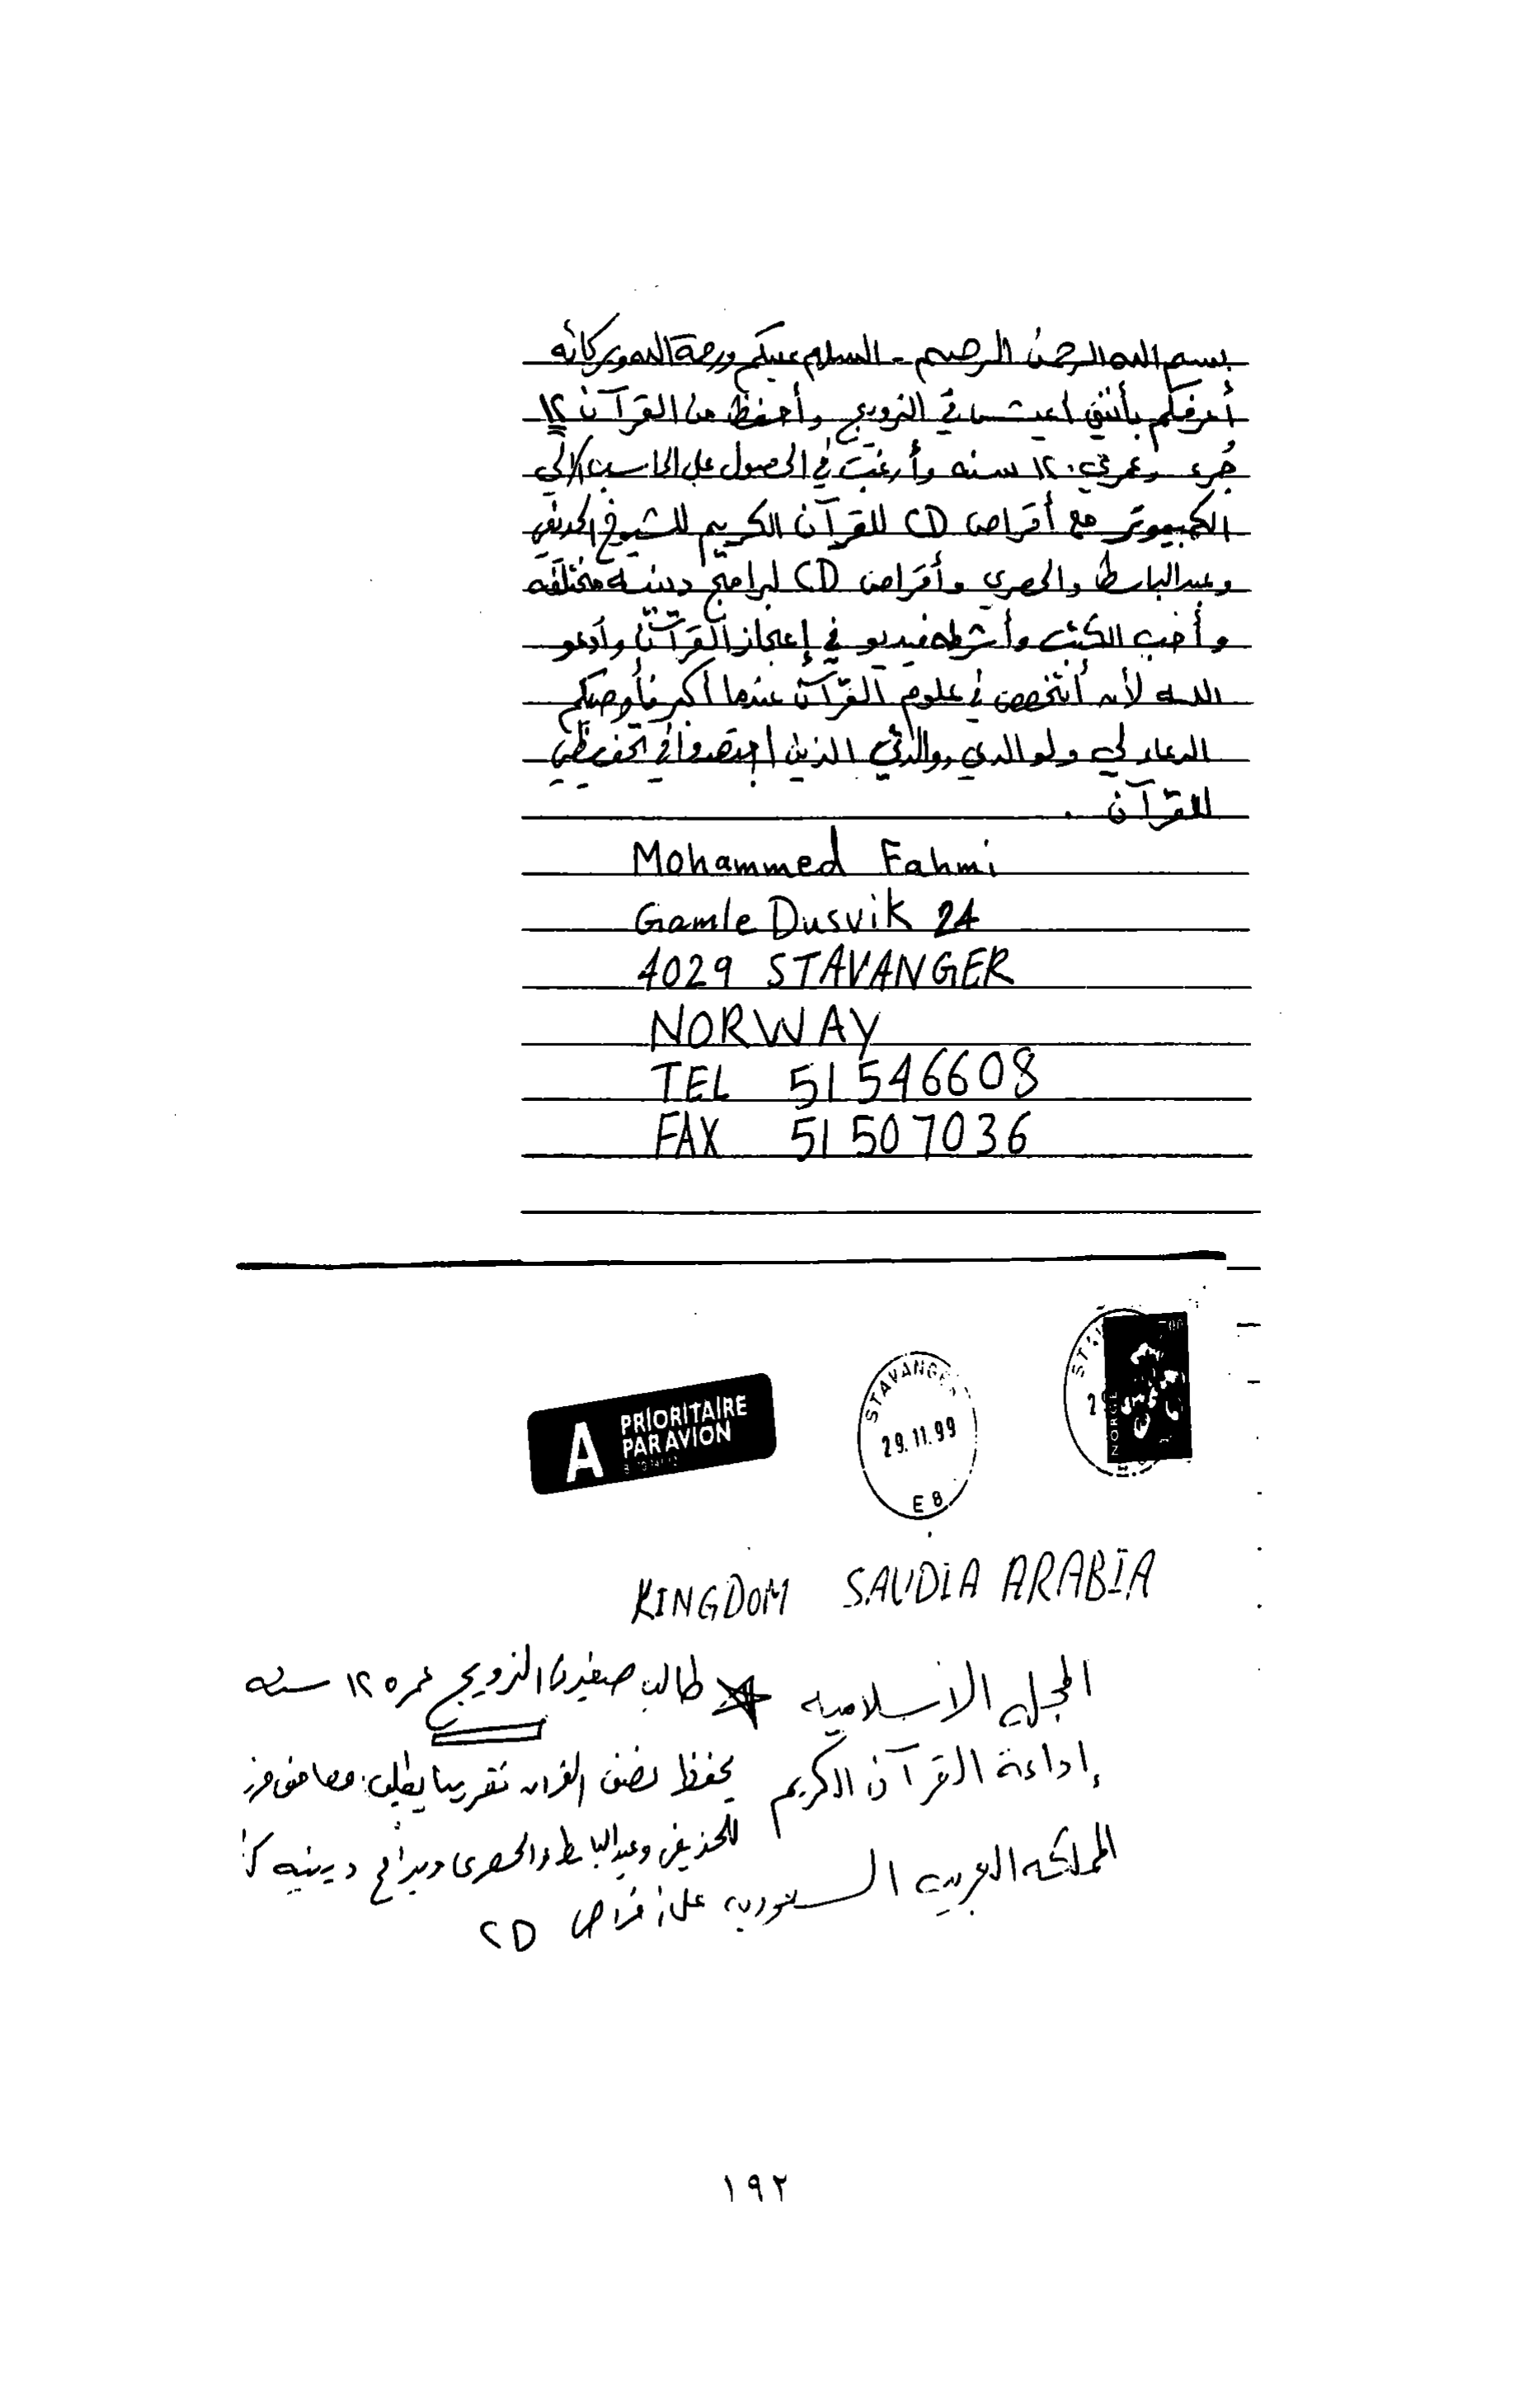 بسم الله الرحمن الرحيم - السلام عليكم ورحمة الله وبركاته
أعرفكم بأنني أعيش في النرويج وأحفظ من القرآن ١٢
جزء وعمري ١٢ سنه وأرغب في الحصول على الحاسب الالي
الكمبيوتر مع أقراص CD للقرآن الكريم للشيوخ الحذيفي
وعبدالباسط والحصري وأقراص CD لبرامج دينية مختلفه
وأحب الكتب وأشرطه فيديو في إعجاز القرآن وأدعو
الله لأن أتخصص في علوم القرآن عندما أكبر فأوصيكم
الدعاء لي ولوالدي ووالدتي الذين اجتهدوا في تحفيظي
للقرآن .
Mohammed Fahmi
Gamle Dusvik 24
4029 STAVANGER
NORWAY
TEL 51 546608
FAX 51 507036
A PRIORITAIRE
PAR AVION
STAVANGER
29.11.99
E 8
NORGE
KINGDOM SAUDIA ARABIA
المجله الاسلاميه
إداعة القرآن الكريم
المملكه العربيه السعوديه
طالب صغير من النرويج عمره ١٢ سنه
يحفظ نصف القران تقريبا يطلب: مصاحف
للحذيفي وعبدالباسط والحصرى وبرامج دينيه
على اقراص CD
١٩٢